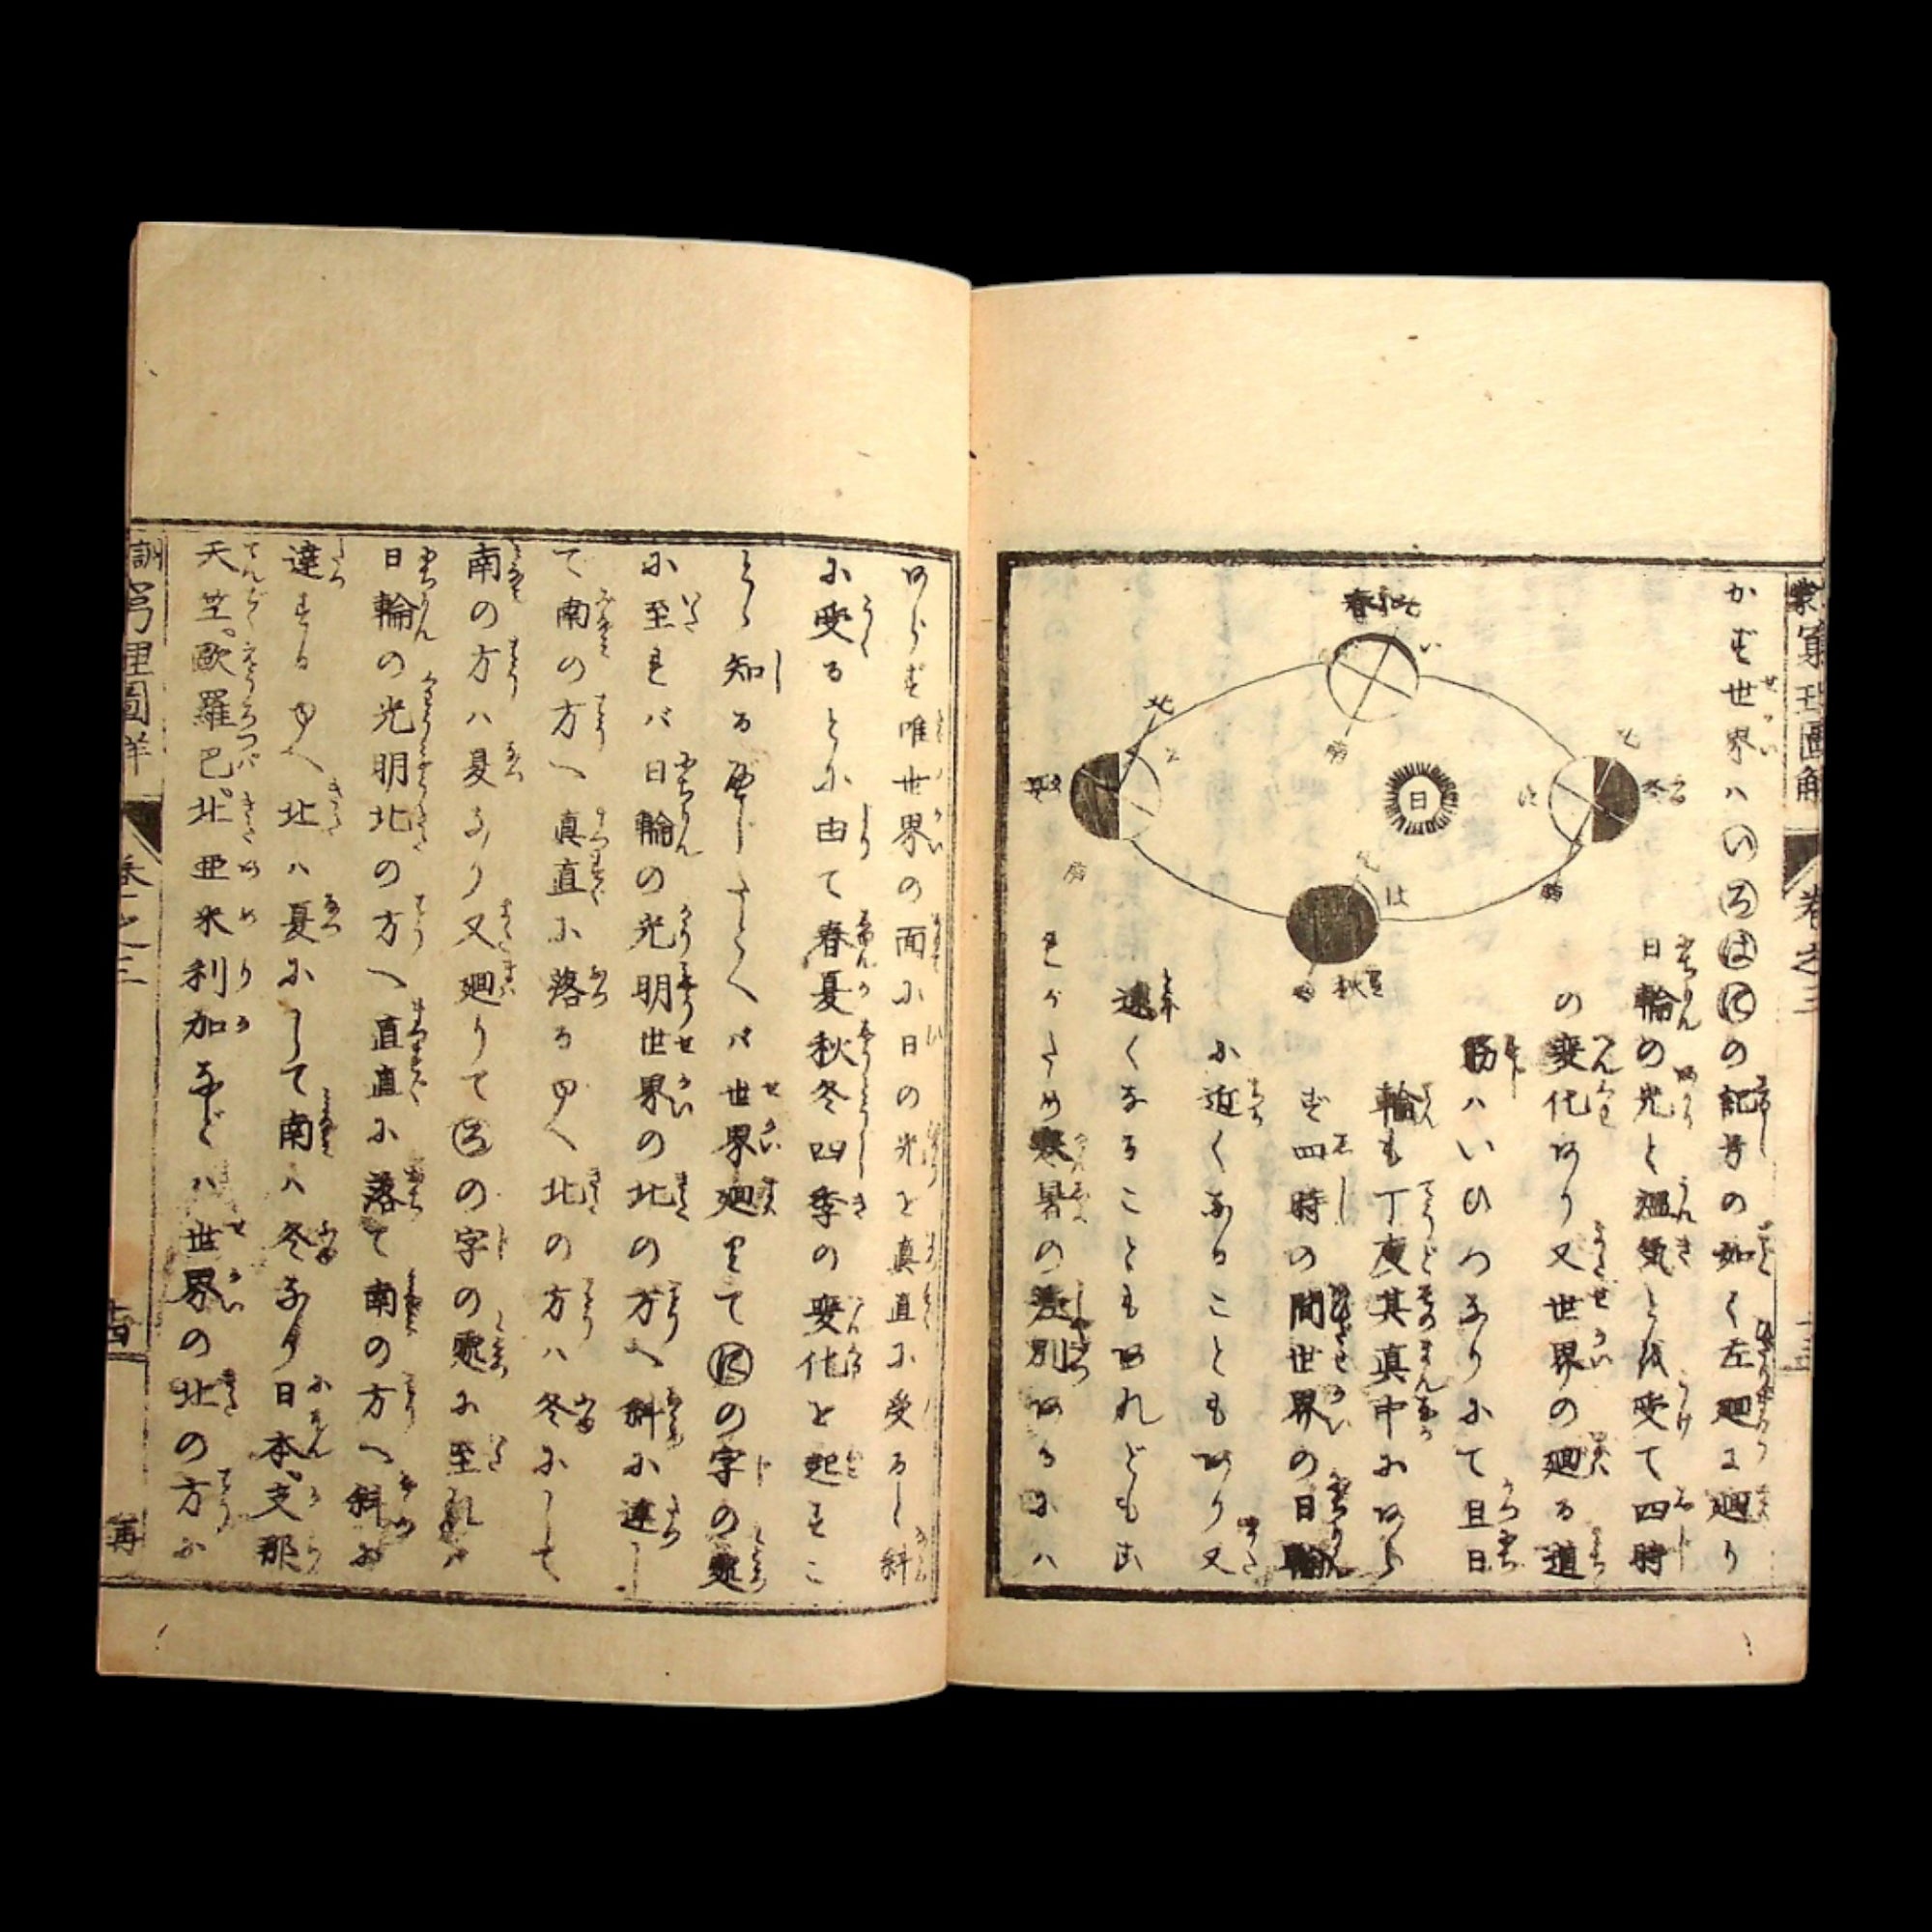 かず世界ハいろはにの記号の如く左廻に廻り
日輪の光と温気とを受て四時
の変化あり又世界の廻る道
筋ハいひつなりにて且日
輪も丁度其真中にあら
ず四時の間世界の日輪
に近くなることもあり又
遠くなることもあれども
寒暑の差別あるにハ
春
北
い
南
日
北
冬
ろ
南
は
秋
北
南
あらず唯世界の面に日の光を真直に受ると斜
に受るとに由て春夏秋冬四季の変化を起すこ
とゝ知るべしたとへバ世界廻りてにの字の処
に至れバ日輪の光明世界の北の方へ斜に達し
て南の方へ真直に落るゆへ北の方ハ冬にして
南の方ハ夏なり又廻りてろの字の処に至れハ
日輪の光明北の方へ直直に落て南の方へ斜に
達するゆへ北ハ夏にして南ハ冬なり日本支那
天竺歐羅巴北亜米利加などハ世界の北の方に
訓
卷之三
十四
再
窮理圖解
卷之三